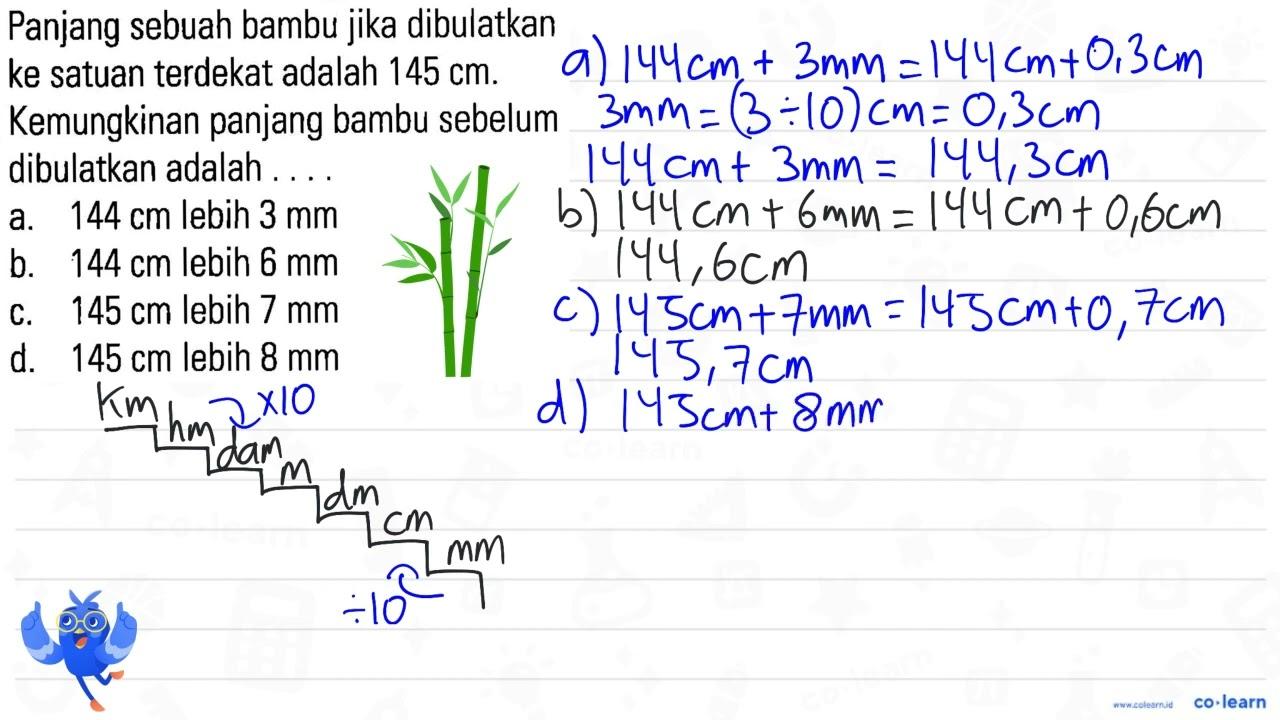 Panjang sebuah bambu jika dibulatkan
ke satuan terdekat adalah 145 cm.
Kemungkinan panjang bambu sebelum
dibulatkan adalah . . . .
a. 144 cm lebih 3 mm
b. 144 cm lebih 6 mm
c. 145 cm lebih 7 mm
d. 145 cm lebih 8 mm
Km
hm
×10
dam
m
dm
cm
mm
÷10
a) 144cm + 3mm = 144cm+0,3cm
3mm = (3÷10)cm = 0,3cm
144cm + 3mm = 144,3cm
b) 144cm + 6mm = 144cm + 0,6cm
144,6cm
c) 145cm + 7mm = 145cm+0,7cm
145,7cm
d) 145cm + 8mm
co·learn
co·learn
co·learn
co·learn
www.colearn.id co·learn